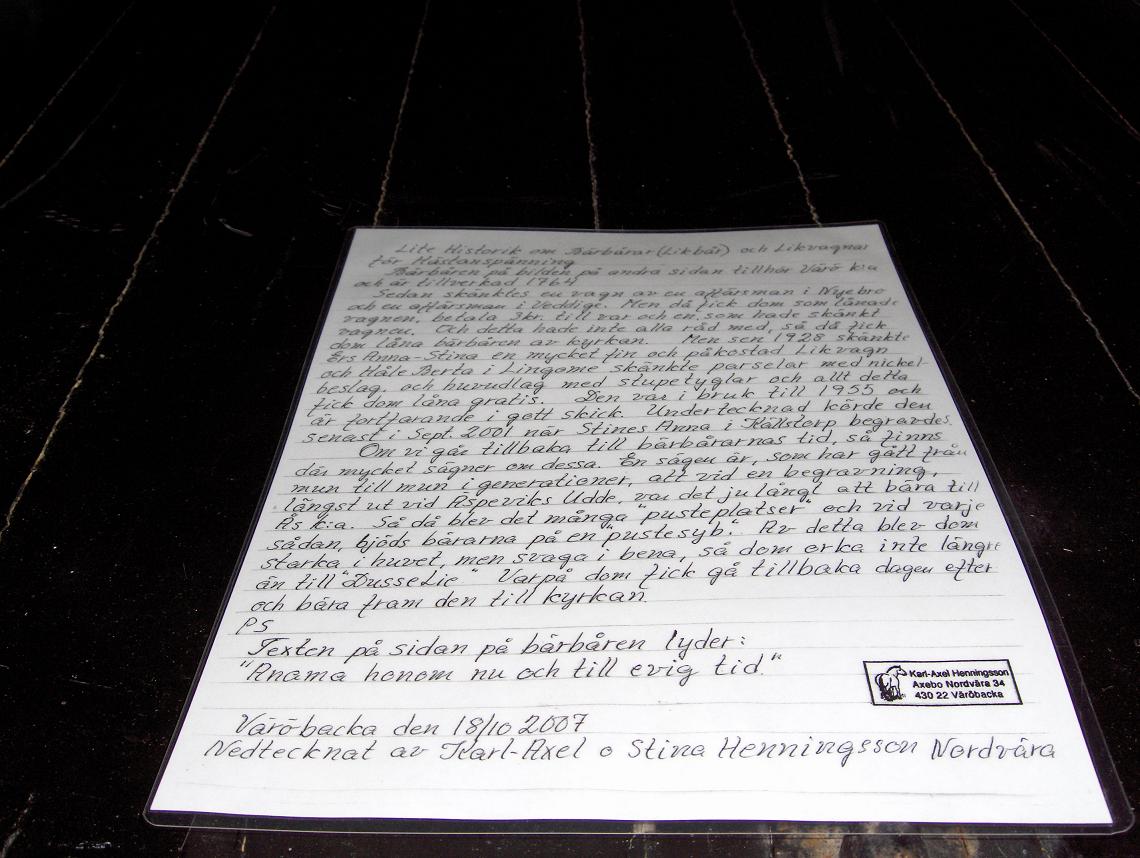 Lite Historik om Bärbårar (Likbår) och Likvagnar
för Hästanspänning
Bärbåren på bilden på andra sidan tillhör Värö k:a
och är tillverkad 1764
Sedan skänktes en vagn av en affärsman i Nyebro
och en affärsman i Veddige. Men då fick dom som lånade
vagnen, betala 3kr. till var och en, som hade skänkt
vagnen. Och detta hade inte alla råd med, så då fick
dom låna bärbåren av kyrkan. Men sen 1928 skänkte
Ers Anna-Stina en mycket fin och påkostad Likvagn
och Håle Berta i Lingome skänkte parselar med nickel-
beslag, och huvudlag med stupetyglar och allt detta
fick dom låna gratis. Den var i bruk till 1955 och
är fortfarande i gott skick. Undertecknad körde den
senast i Sept. 2001 när Stines Anna i Källstorp begravdes.
Om vi går tillbaka till bärbårarnas tid, så finns
där mycket sägner om dessa. En sägen är, som har gått från
mun till mun i generationer, att vid en begravning,
längst ut vid Äspeviks Udde, var det ju långt att bära till
Ås k:a. Så då blev det många "pusteplatser" och vid varje
sådan, bjöds bärarna på en "pustesyb". Av detta blev dom
starka i huvet, men svaga i bena, så dom orka inte längre
än till "DusseLie" Varpå dom fick gå tillbaka dagen efter
och bära fram den till kyrkan.
PS
Texten på sidan på bärbåren lyder:
"Anama honom nu och till evig tid."
Karl-Axel Henningsson
Axebo Nordvära 34
430 22 Väröbacka
Väröbacka den 18/10 2007
Nedtecknat av Karl-Axel o Stina Henningsson Nordvära